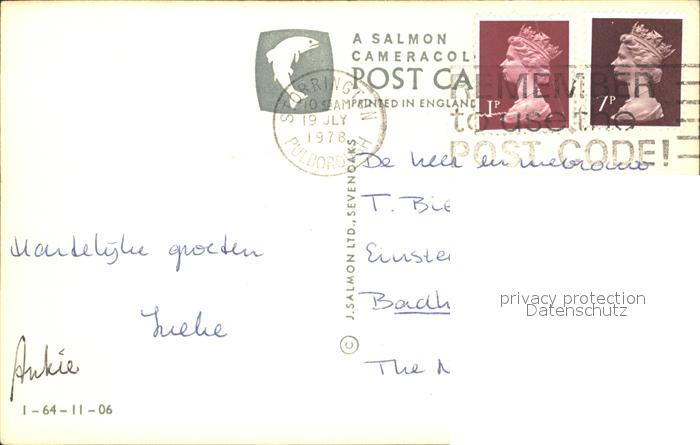 A SALMON
CAMERACOL
POST CA
PRINTED IN ENGLAND
STORRINGTON
10 30 AM
19 JLY
1978
PULBOROUGH
1P
7P
REMEMBER
to use the
POST CODE!
© J. SALMON LTD., SEVENOAKS
De heer en mevrouw
T. Bie
Einste
Badh
The N
Hartelijke groeten
Ineke
Ankie
1-64-11-06
privacy protection
Datenschutz